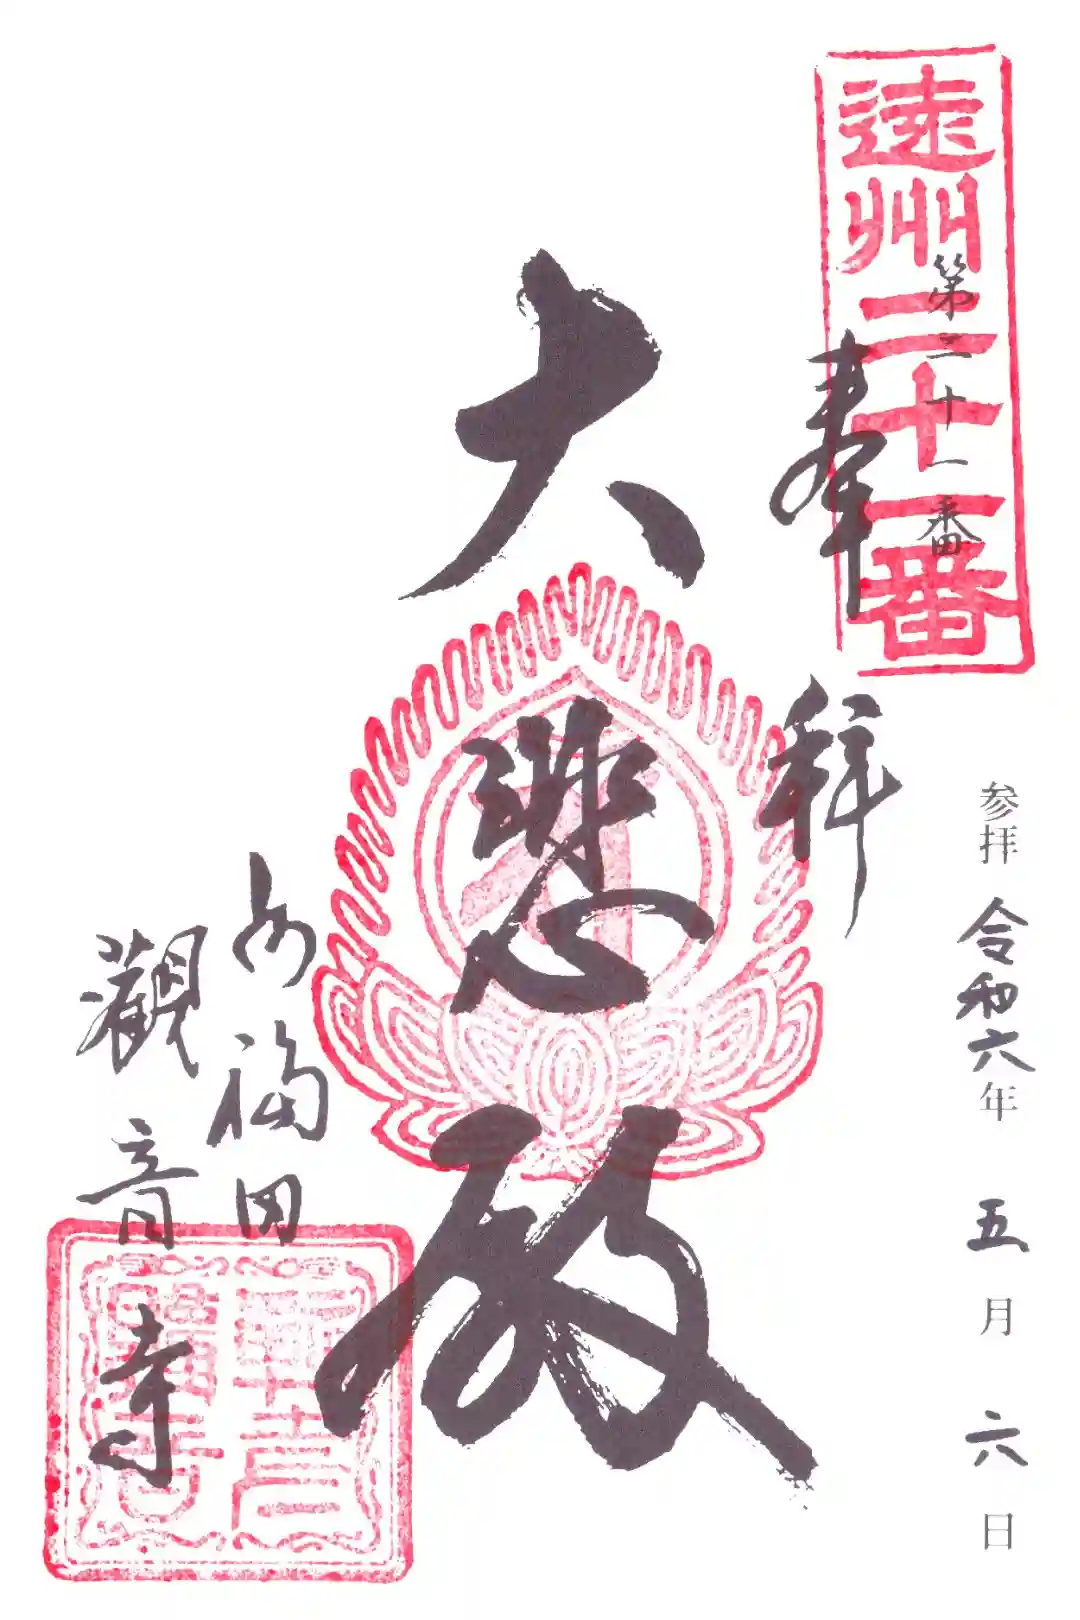 遠州二十一番
第二十一番
奉拝
参拝 令和六年 五月六日
大悲殿
福田
觀音寺